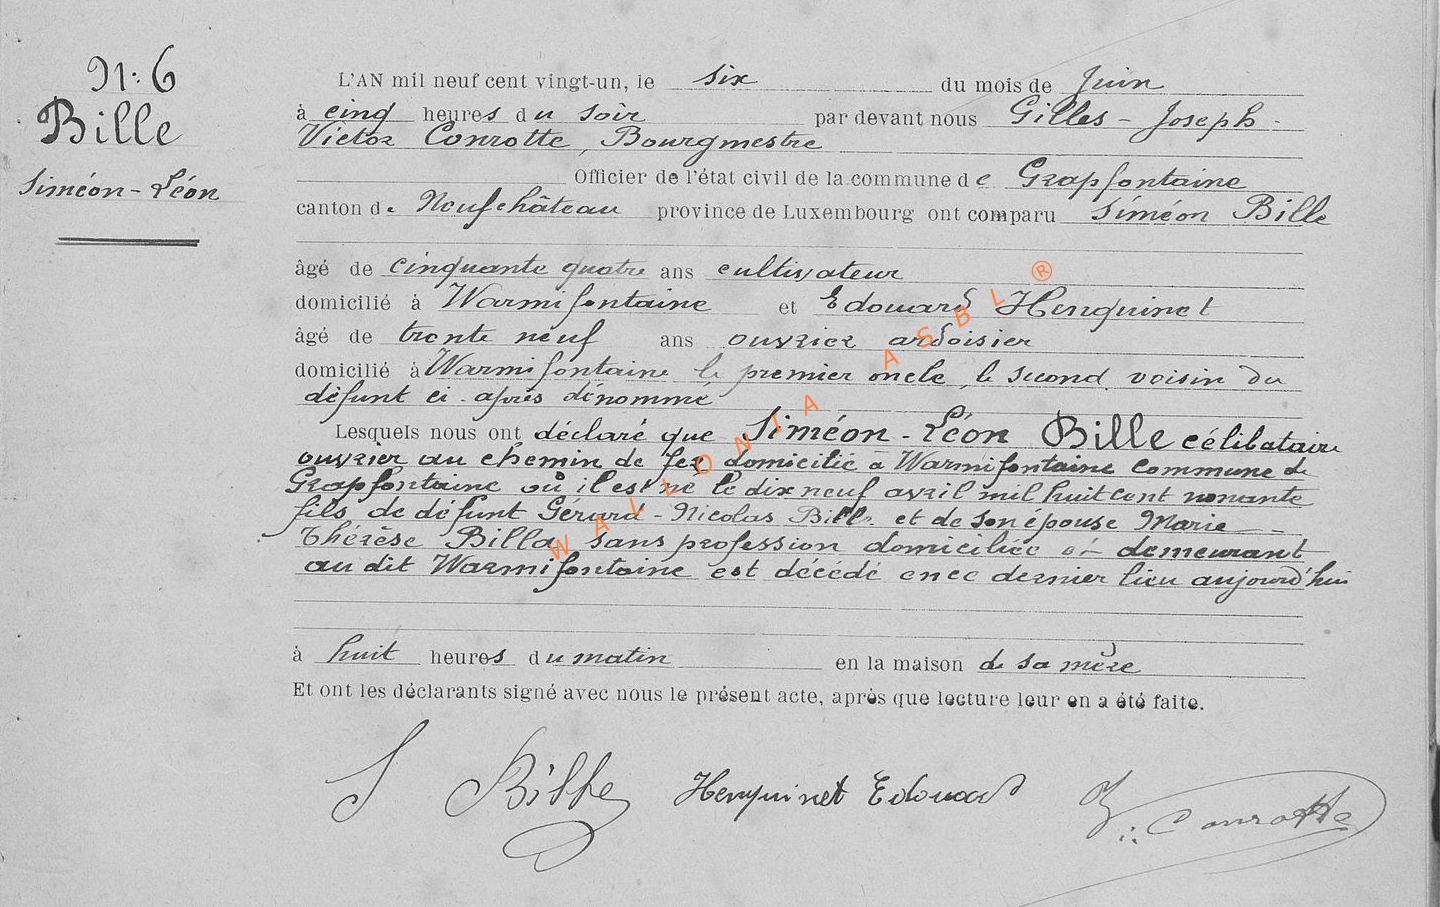 N: 6
Bille
Siméon-Léon
L'AN mil neuf cent vingt-un, le six du mois de Juin
à cinq heures du soir par devant nous Gilles-Joseph-
Victor Conrotte, Bourgmestre
Officier de l'état civil de la commune de Grapfontaine
canton de Neufchâteau province de Luxembourg ont comparu Siméon Bille
âgé de cinquante quatre ans cultivateur
domicilié à Warmifontaine et Edouard Henquinet
âgé de trente neuf ans ouvrier ardoisier
domicilié à Warmifontaine le premier oncle, le second voisin du
défunt ci-après dénommé
Lesquels nous ont déclaré que Siméon-Léon Bille célibataire
ouvrier au chemin de fer domicilié à Warmifontaine commune de
Grapfontaine où il est né le dix neuf avril mil huit cent nonante
fils de défunt Gerard-Nicolas Bille et de son épouse Marie-
Thérèse Billa, sans profession domiciliée et demeurant
au dit Warmifontaine est décédé en ce dernier lieu aujourd'hui
à huit heures du matin en la maison de sa mère
Et ont les déclarants signé avec nous le présent acte, après que lecture leur en a été faite.
S Bille Henquinet Edouard Conrotte
WALLONIA ASBL ®